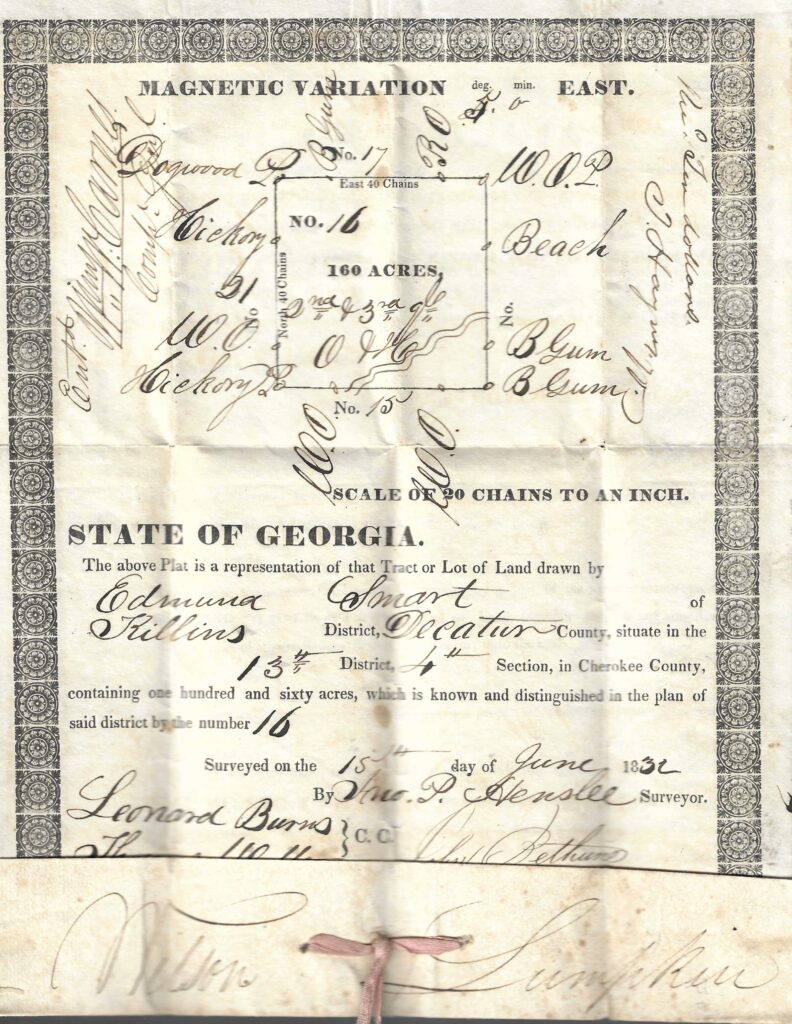 MAGNETIC VARIATION deg. 5. min. 0 EAST.
Dogwood P.
B Gum
No. 17
RO
W. O. P.
East 40 Chains
Hickory
NO. 16
Beach
160 ACRES,
North 40 Chains
No 21
2nd & 3rd qly
No.
W. O.
O & H
B Gum
Hickory P
B Gum.
No. 15
W. O.
W. O.
Entd
Recd. Ten dollars.
T. Haynes
SCALE OF 20 CHAINS TO AN INCH.
STATE OF GEORGIA.
The above Plat is a representation of that Tract or Lot of Land drawn by
Edmund Smart of
Killins District, Decatur County, situate in the
13th District, 4th Section, in Cherokee County,
containing one hundred and sixty acres, which is known and distinguished in the plan of
said district by the number 16
Surveyed on the 15th day of June 1832
By Jno. P. Henslee Surveyor.
Leonard Burns
C. C.
Bethune
Wilson Lumpkin